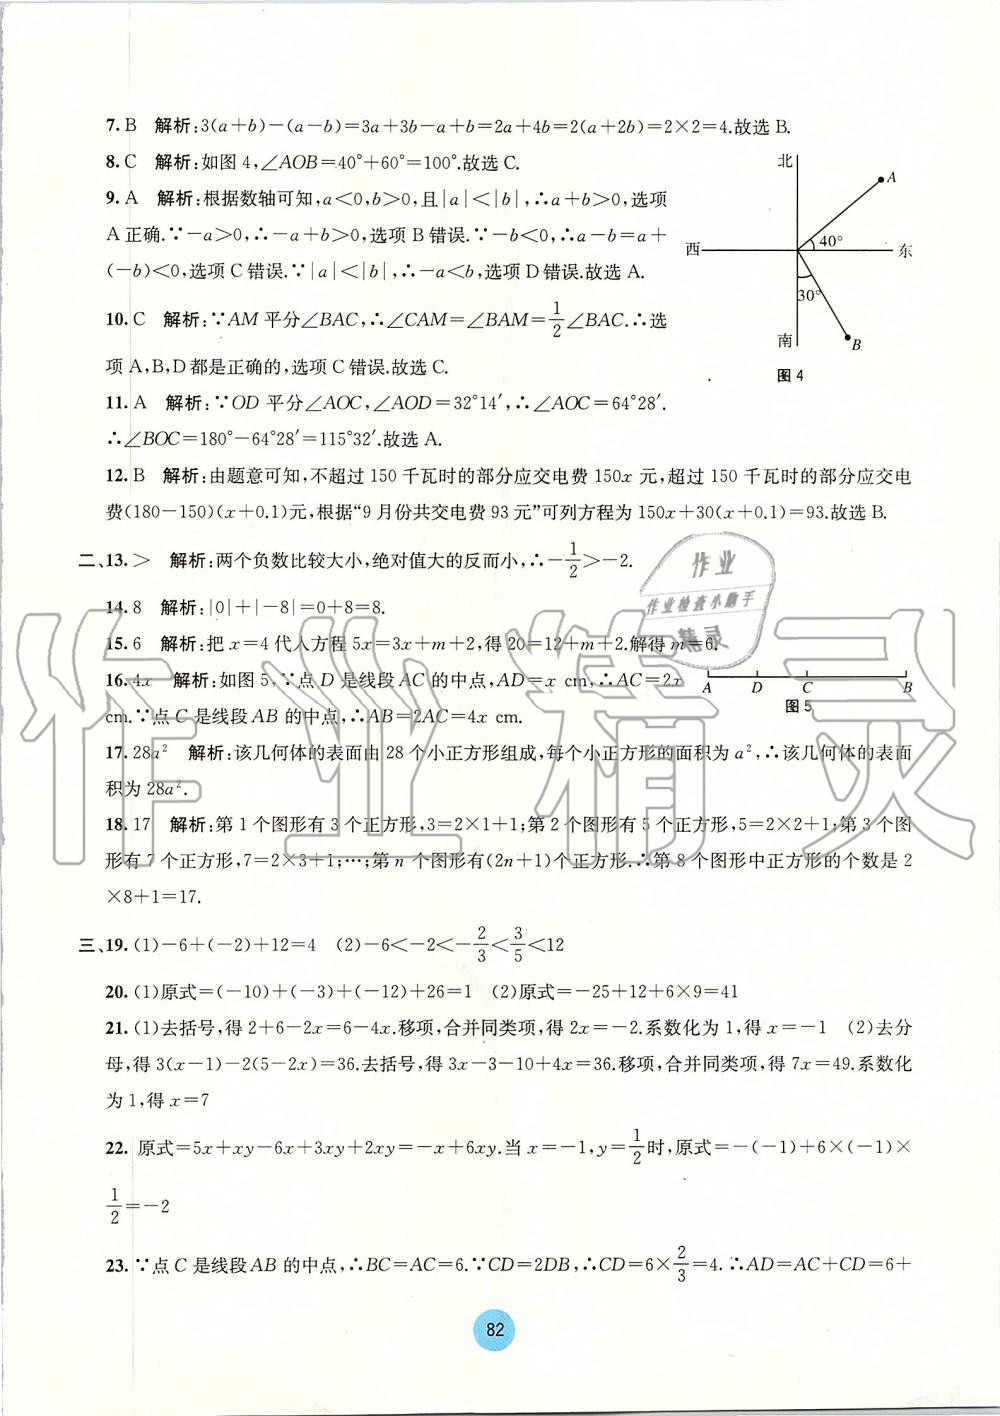 7.B　解析:3(a+b)-(a-b)=3a+3b-a+b=2a+4b=2(a+2b)=2×2=4.故选B.
8.C　解析:如图4,∠AOB=40°+60°=100°.故选C.
9.A　解析:根据数轴可知,a<0,b>0,且|a|<|b|,∴a+b>0,选项
A正确.∵-a>0,∴-a+b>0,选项B错误.∵-b<0,∴a-b=a+
(-b)<0,选项C错误.∵|a|<|b|,∴-a<b,选项D错误.故选A.
10.C　解析:∵AM平分∠BAC,∴∠CAM=∠BAM=1/2∠BAC.∴选
项A,B,D都是正确的,选项C错误.故选C.
11.A　解析:∵OD平分∠AOC,∠AOD=32°14′,∴∠AOC=64°28′.
∴∠BOC=180°-64°28′=115°32′.故选A.
北
A
西
40°
东
30°
南
B
图4
12.B　解析:由题意可知,不超过150千瓦时的部分应交电费150x元,超过150千瓦时的部分应交电
费(180-150)(x+0.1)元,根据“9月份共交电费93元”可列方程为150x+30(x+0.1)=93.故选B.
二、13.>　解析:两个负数比较大小,绝对值大的反而小,∴-1/2>-2.
14.8　解析:|0|+|-8|=0+8=8.
15.6　解析:把x=4代入方程5x=3x+m+2,得20=12+m+2.解得m=6.
16.4x　解析:如图5,∵点D是线段AC的中点,AD=x cm,∴AC=2x
cm.∵点C是线段AB的中点,∴AB=2AC=4x cm.
A D C B
图5
17.28a²　解析:该几何体的表面由28个小正方形组成,每个小正方形的面积为a²,∴该几何体的表面
积为28a².
18.17　解析:第1个图形有3个正方形,3=2×1+1;第2个图形有5个正方形,5=2×2+1;第3个图
形有7个正方形,7=2×3+1;…;第n个图形有(2n+1)个正方形.∴第8个图形中正方形的个数是2
×8+1=17.
三、19.(1)-6+(-2)+12=4　(2)-6<-2<-2/3<3/5<12
20.(1)原式=(-10)+(-3)+(-12)+26=1　(2)原式=-25+12+6×9=41
21.(1)去括号,得2+6-2x=6-4x.移项,合并同类项,得2x=-2.系数化为1,得x=-1　(2)去分
母,得3(x-1)-2(5-2x)=36.去括号,得3x-3-10+4x=36.移项,合并同类项,得7x=49.系数化
为1,得x=7
22.原式=5x+xy-6x+3xy+2xy=-x+6xy.当x=-1,y=1/2时,原式=-(-1)+6×(-1)×
1/2=-2
23.∵点C是线段AB的中点,∴BC=AC=6.∵CD=2DB,∴CD=6×2/3=4.∴AD=AC+CD=6+
82
作业精灵
作业
作业检查小助手
精灵